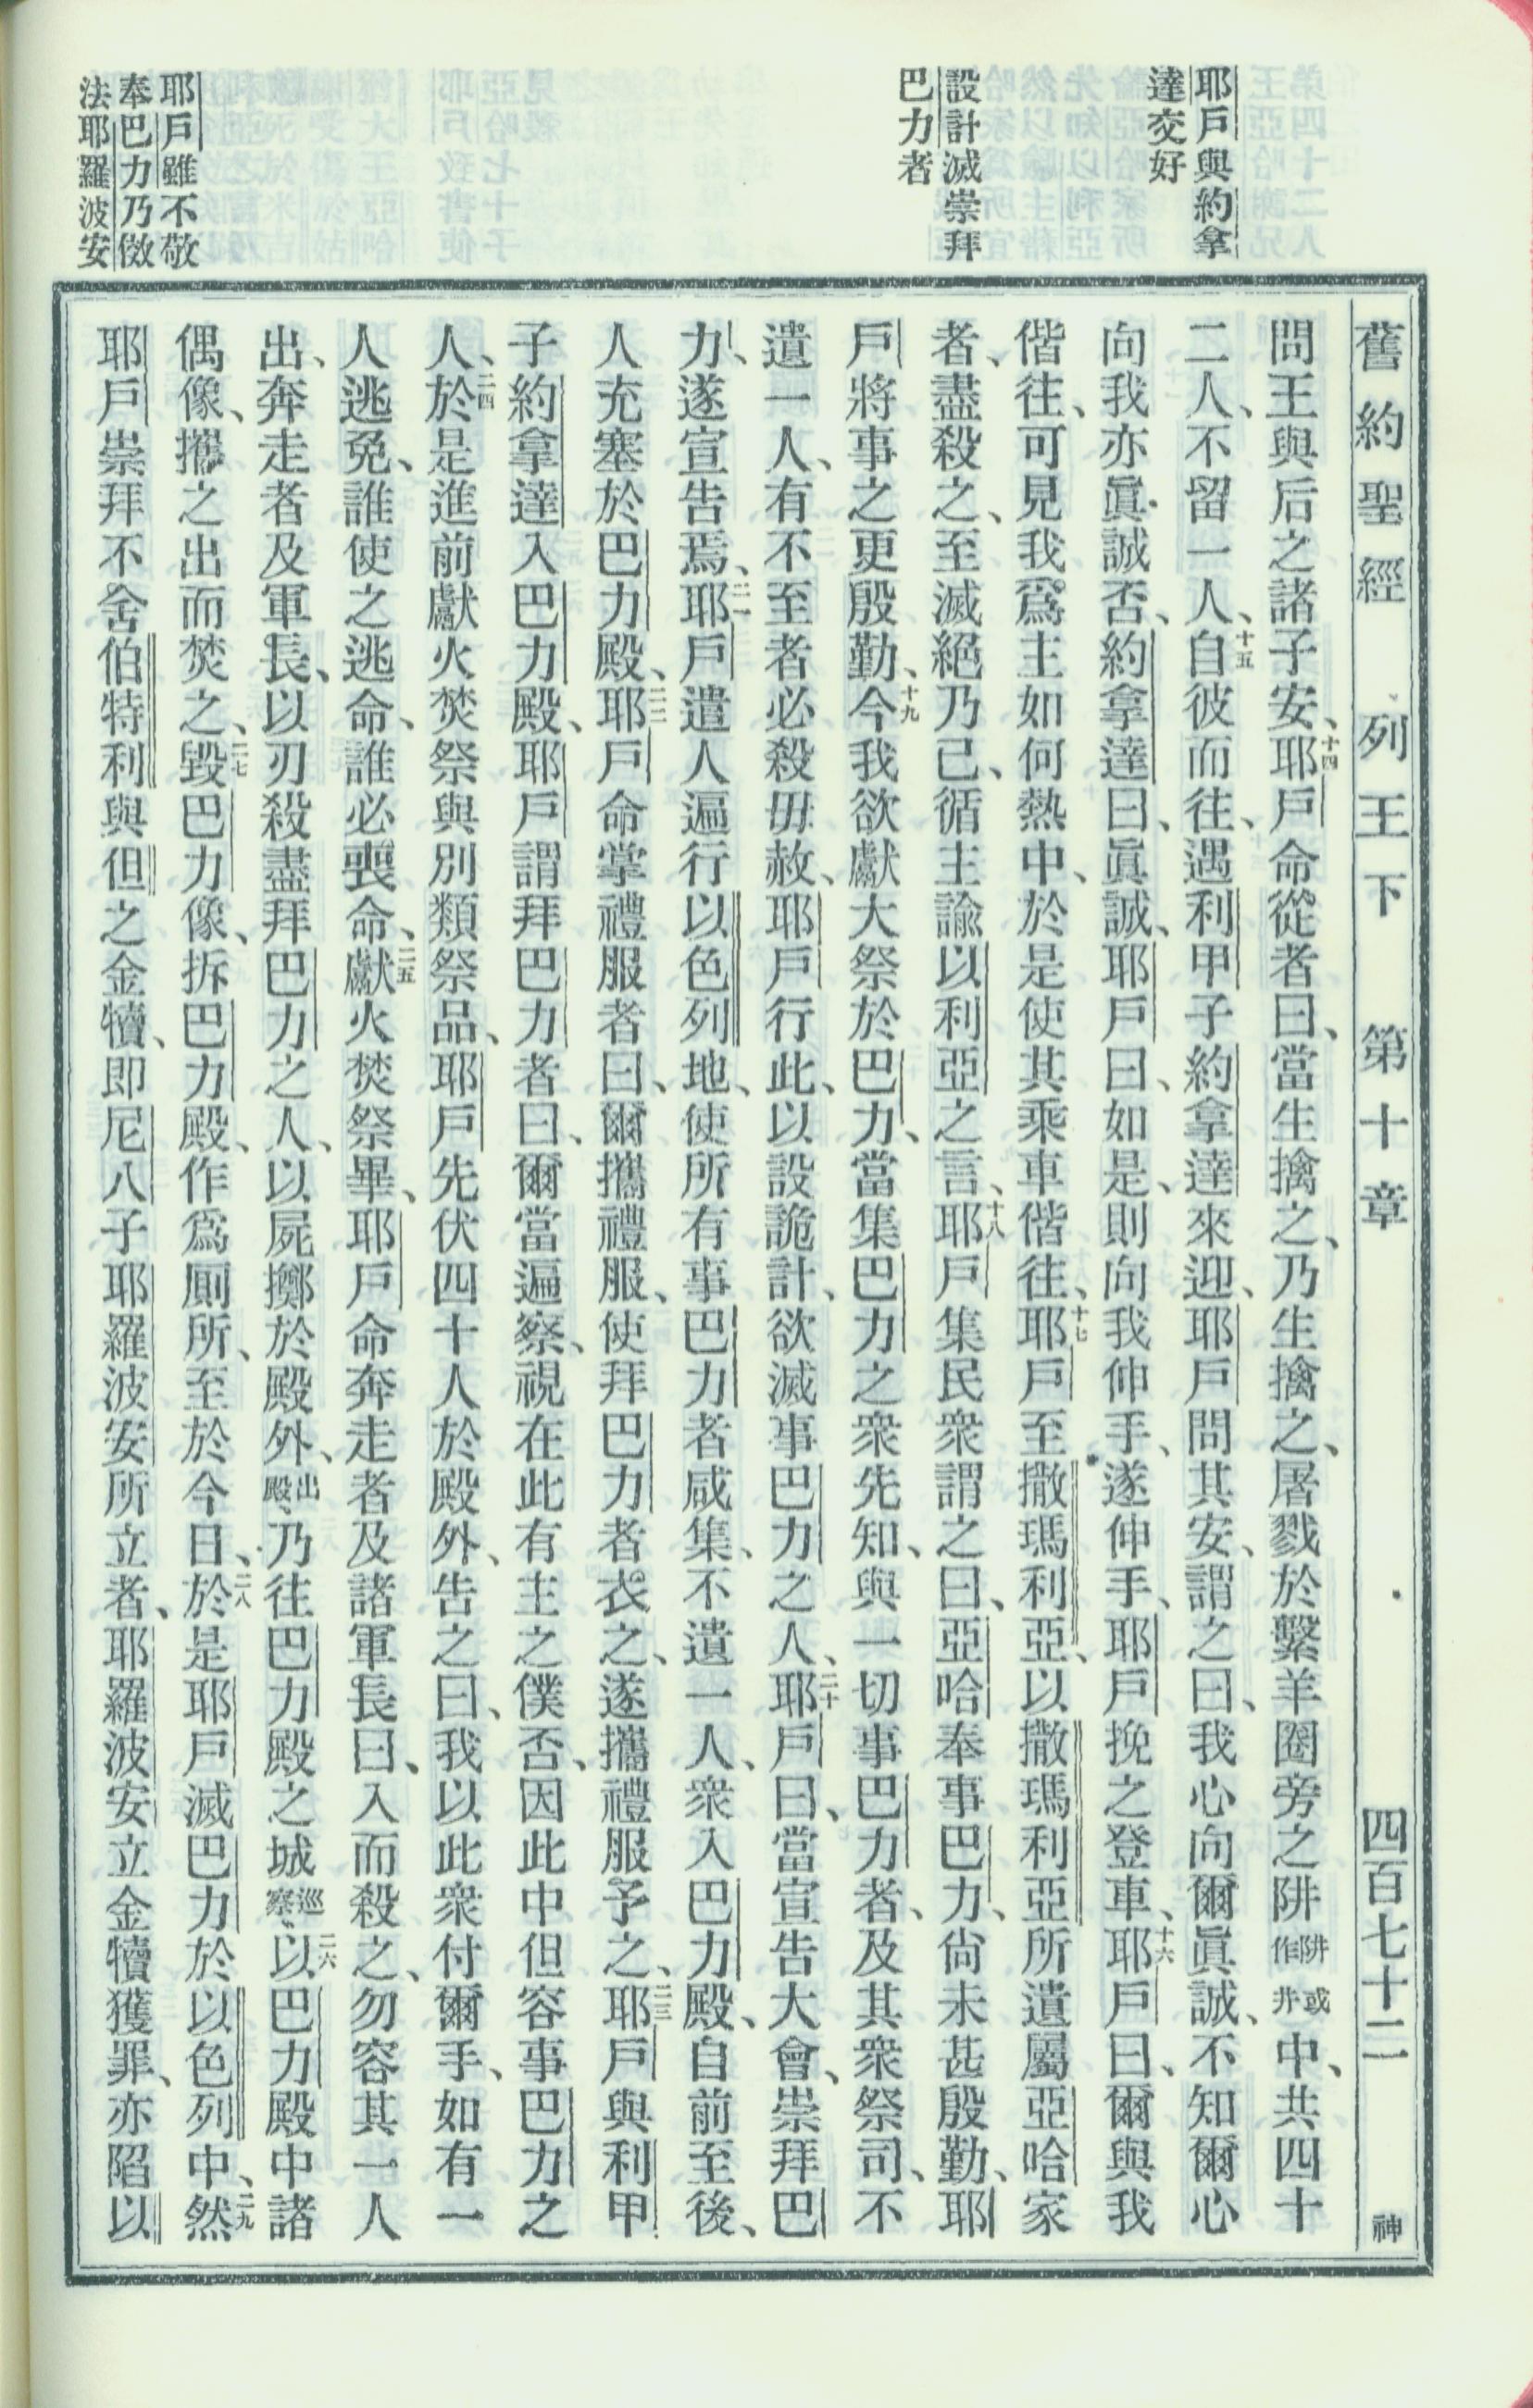 舊約聖經 列王下 第十章 四百七十二 神
耶戶與約拿
達交好
設計滅崇拜
巴力者
耶戶雖不敬
奉巴力乃傚
法耶羅波安
問王與后之諸子安、十四耶戶命從者曰、當生擒之、乃生擒之、屠戮於繫羊圈旁之阱阱或作井中、共四十
二人、不留一人、十五自彼而往、遇利甲子約拿達來迎、耶戶問其安、謂之曰、我心向爾眞誠、不知爾心
向我亦眞誠否、約拿達曰、眞誠、耶戶曰、如是、則向我伸手、遂伸手、耶戶挽之登車、十六耶戶曰、爾與我
偕往、可見我爲主如何熱中、於是使其乘車偕往、十七耶戶至撒瑪利亞、以撒瑪利亞所遺屬亞哈家
者、盡殺之、至滅絕乃已、循主諭以利亞之言、十八耶戶集民衆謂之曰、亞哈奉事巴力、尙未甚殷勤、耶
戶將事之更殷勤、十九今我欲獻大祭於巴力、當集巴力之衆先知、與一切事巴力者、及其衆祭司、不
遺一人、有不至者必殺毋赦、耶戶行此、以設詭計、欲滅事巴力之人、二十耶戶曰、當宣告大會、崇拜巴
力、遂宣告焉、二一耶戶遣人遍行以色列地、使所有事巴力者咸集、不遺一人、衆入巴力殿、自前至後、
人充塞於巴力殿、二二耶戶命掌禮服者曰、爾攜禮服、使拜巴力者衣之、遂攜禮服予之、二三耶戶與利甲
子約拿達入巴力殿、耶戶謂拜巴力者曰、爾當遍察、視在此有主之僕否、因此中但容事巴力之
人、二四於是進前獻火焚祭與別類祭品、耶戶先伏四十人於殿外、告之曰、我以此衆付爾手、如有一
人逃免、誰使之逃命、誰必喪命、二五獻火焚祭畢、耶戶命奔走者及諸軍長曰、入而殺之、勿容其一人
出、奔走者及軍長、以刃殺盡拜巴力之人、以屍擲於殿外、出殿、乃往巴力殿之城巡察、二六以巴力殿中諸
偶像、攜之出而焚之、二七毀巴力像、拆巴力殿、作爲厠所、至於今日、二八於是耶戶滅巴力於以色列中、二九然
耶戶崇拜不舍伯特利與但之金犢、即尼八子耶羅波安所立者、耶羅波安立金犢獲罪、亦陷以